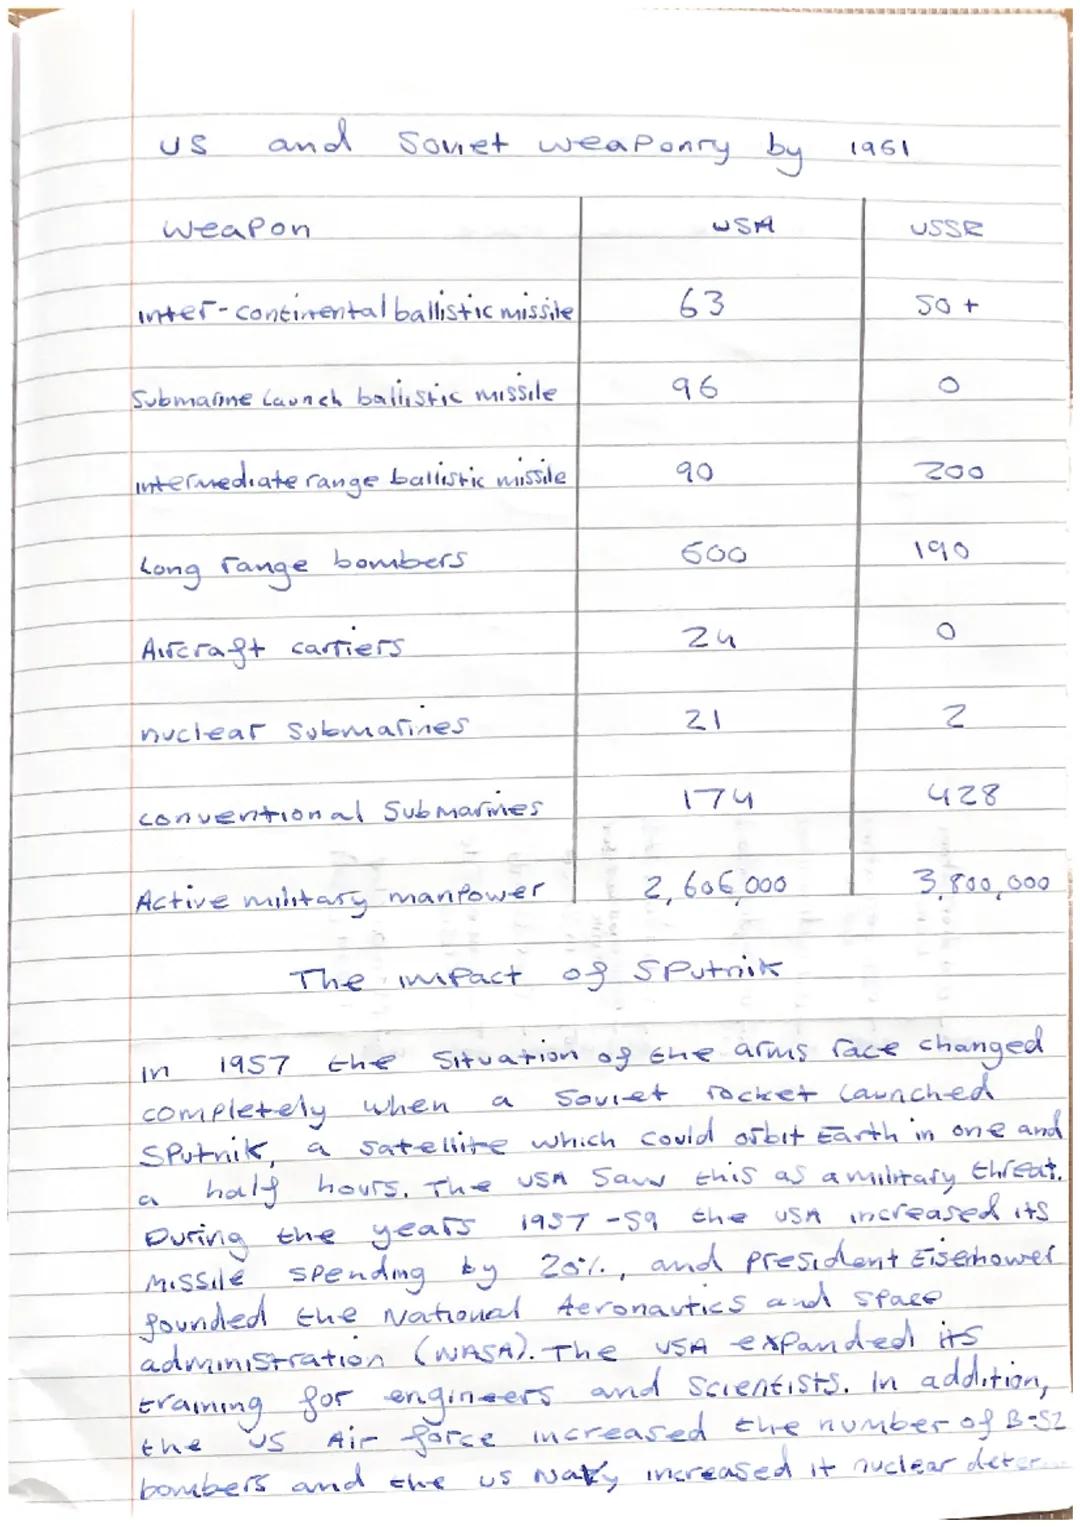 US and Soviet weaponry by 1961
Weapon USA USSR
inter-continental ballistic missile 63 50+
Submarine Launch ballistic missile 96 0
intermediate range ballistic missile 90 200
Long range bombers 600 190
Aircraft carriers 24 0
nuclear Submarines 21 2
conventional Submarines 174 428
Active military manpower 2,606,000 3,800,000
The impact of Sputnik
In 1957 the situation of the arms race changed
completely when a Soviet rocket launched
Sputnik, a satellite which could orbit Earth in one and
a half hours. The USA Saw this as a military threat.
During the years 1957-59 the USA increased its
missile spending by 20%, and president Eisenhower
founded the National Aeronautics and space
administration (NASA). The USA expanded its
training for engineers and Scientists. In addition,
the US Air force increased the number of B-52
bombers and the US Navy increased it nuclear deter...